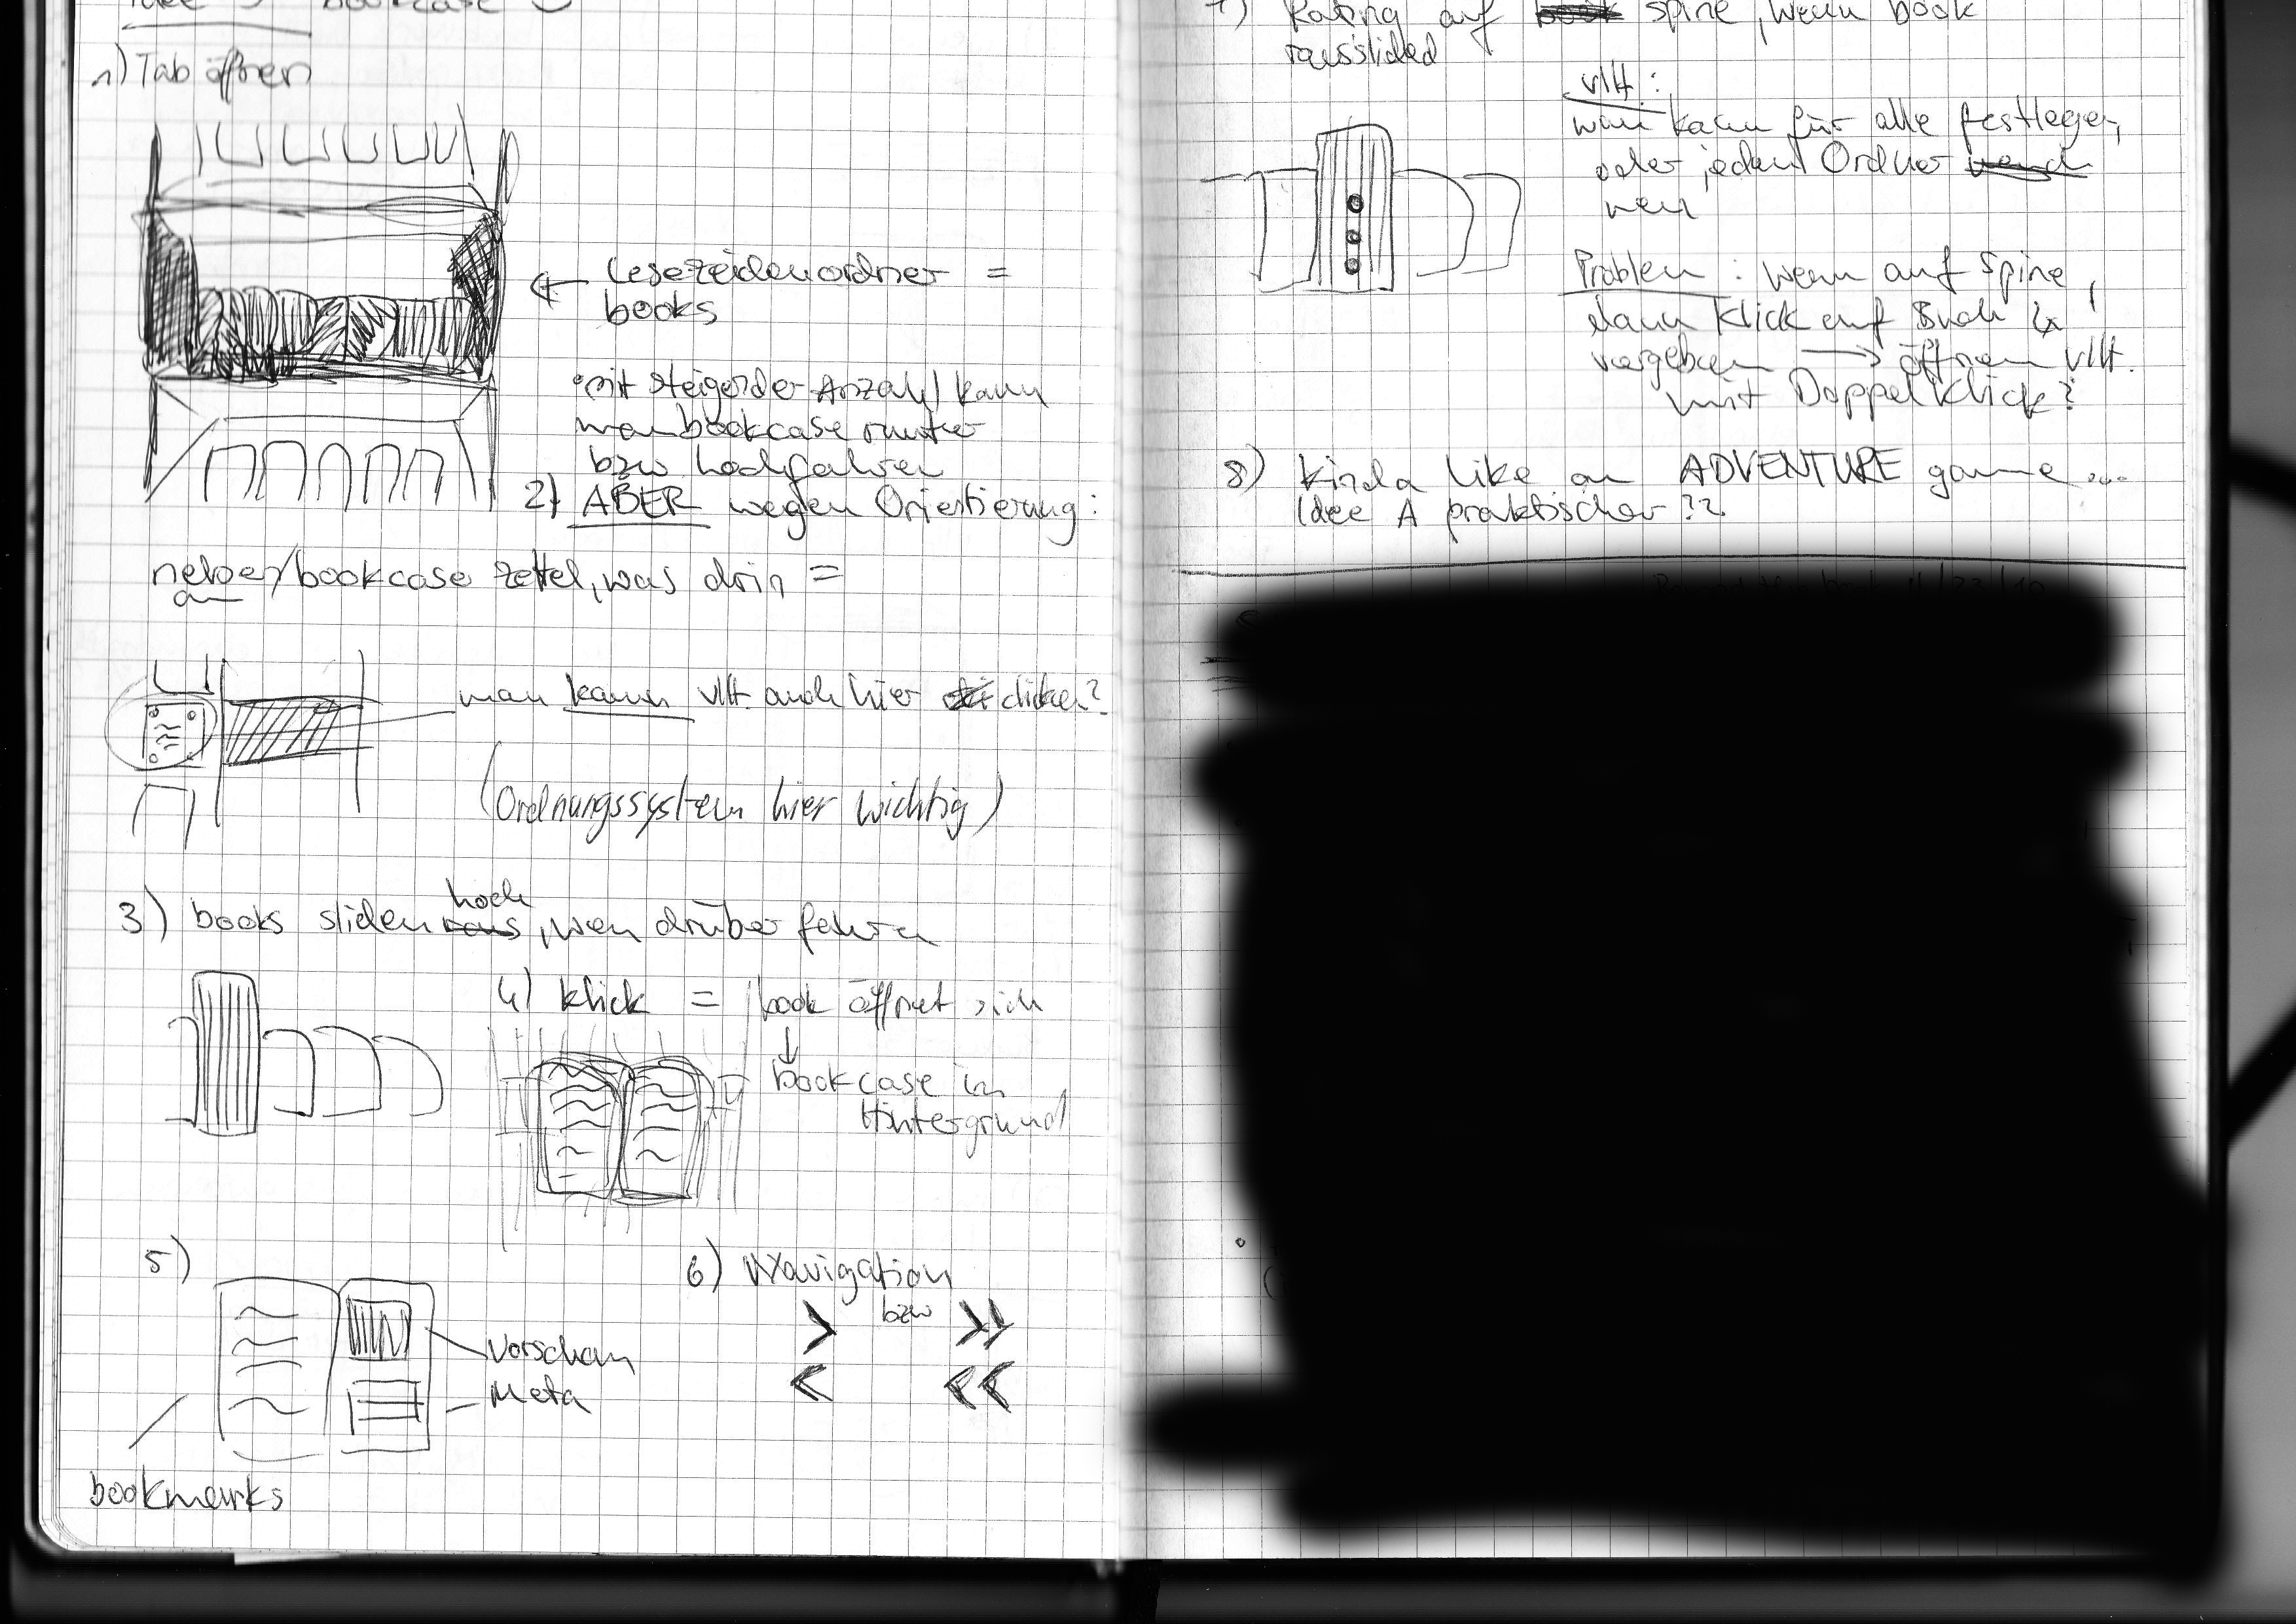 bookcase
1) Tab öffnen
← Lesezeichenordner =
books
• mit steigender Anzahl kann
man bookcase runter
bzw hochfahren
2) ABER wegen Orientierung:
neben/bookcase zettel, was drin =
an
man kann vllt. auch hier clicken?
(Ordnungssystem hier wichtig)
hoch
3) books sliden raus, wenn drüber fahren
4) klick = book öffnet sich
↓
bookcase im
Hintergrund
5)
Vorschau
Meta
bookmarks
6) Navigation
> bzw >>
< <<
7) Rating auf book spine, wenn book
rausslided
vllt:
man kann für alle festlegen,
oder jeden Ordner
neu
Problem: wenn auf Spine,
dann Klick auf Buch
vergeben → öffnen vllt.
mit Doppelklick?
8) kinda like an ADVENTURE game ...
Idee A praktischer??